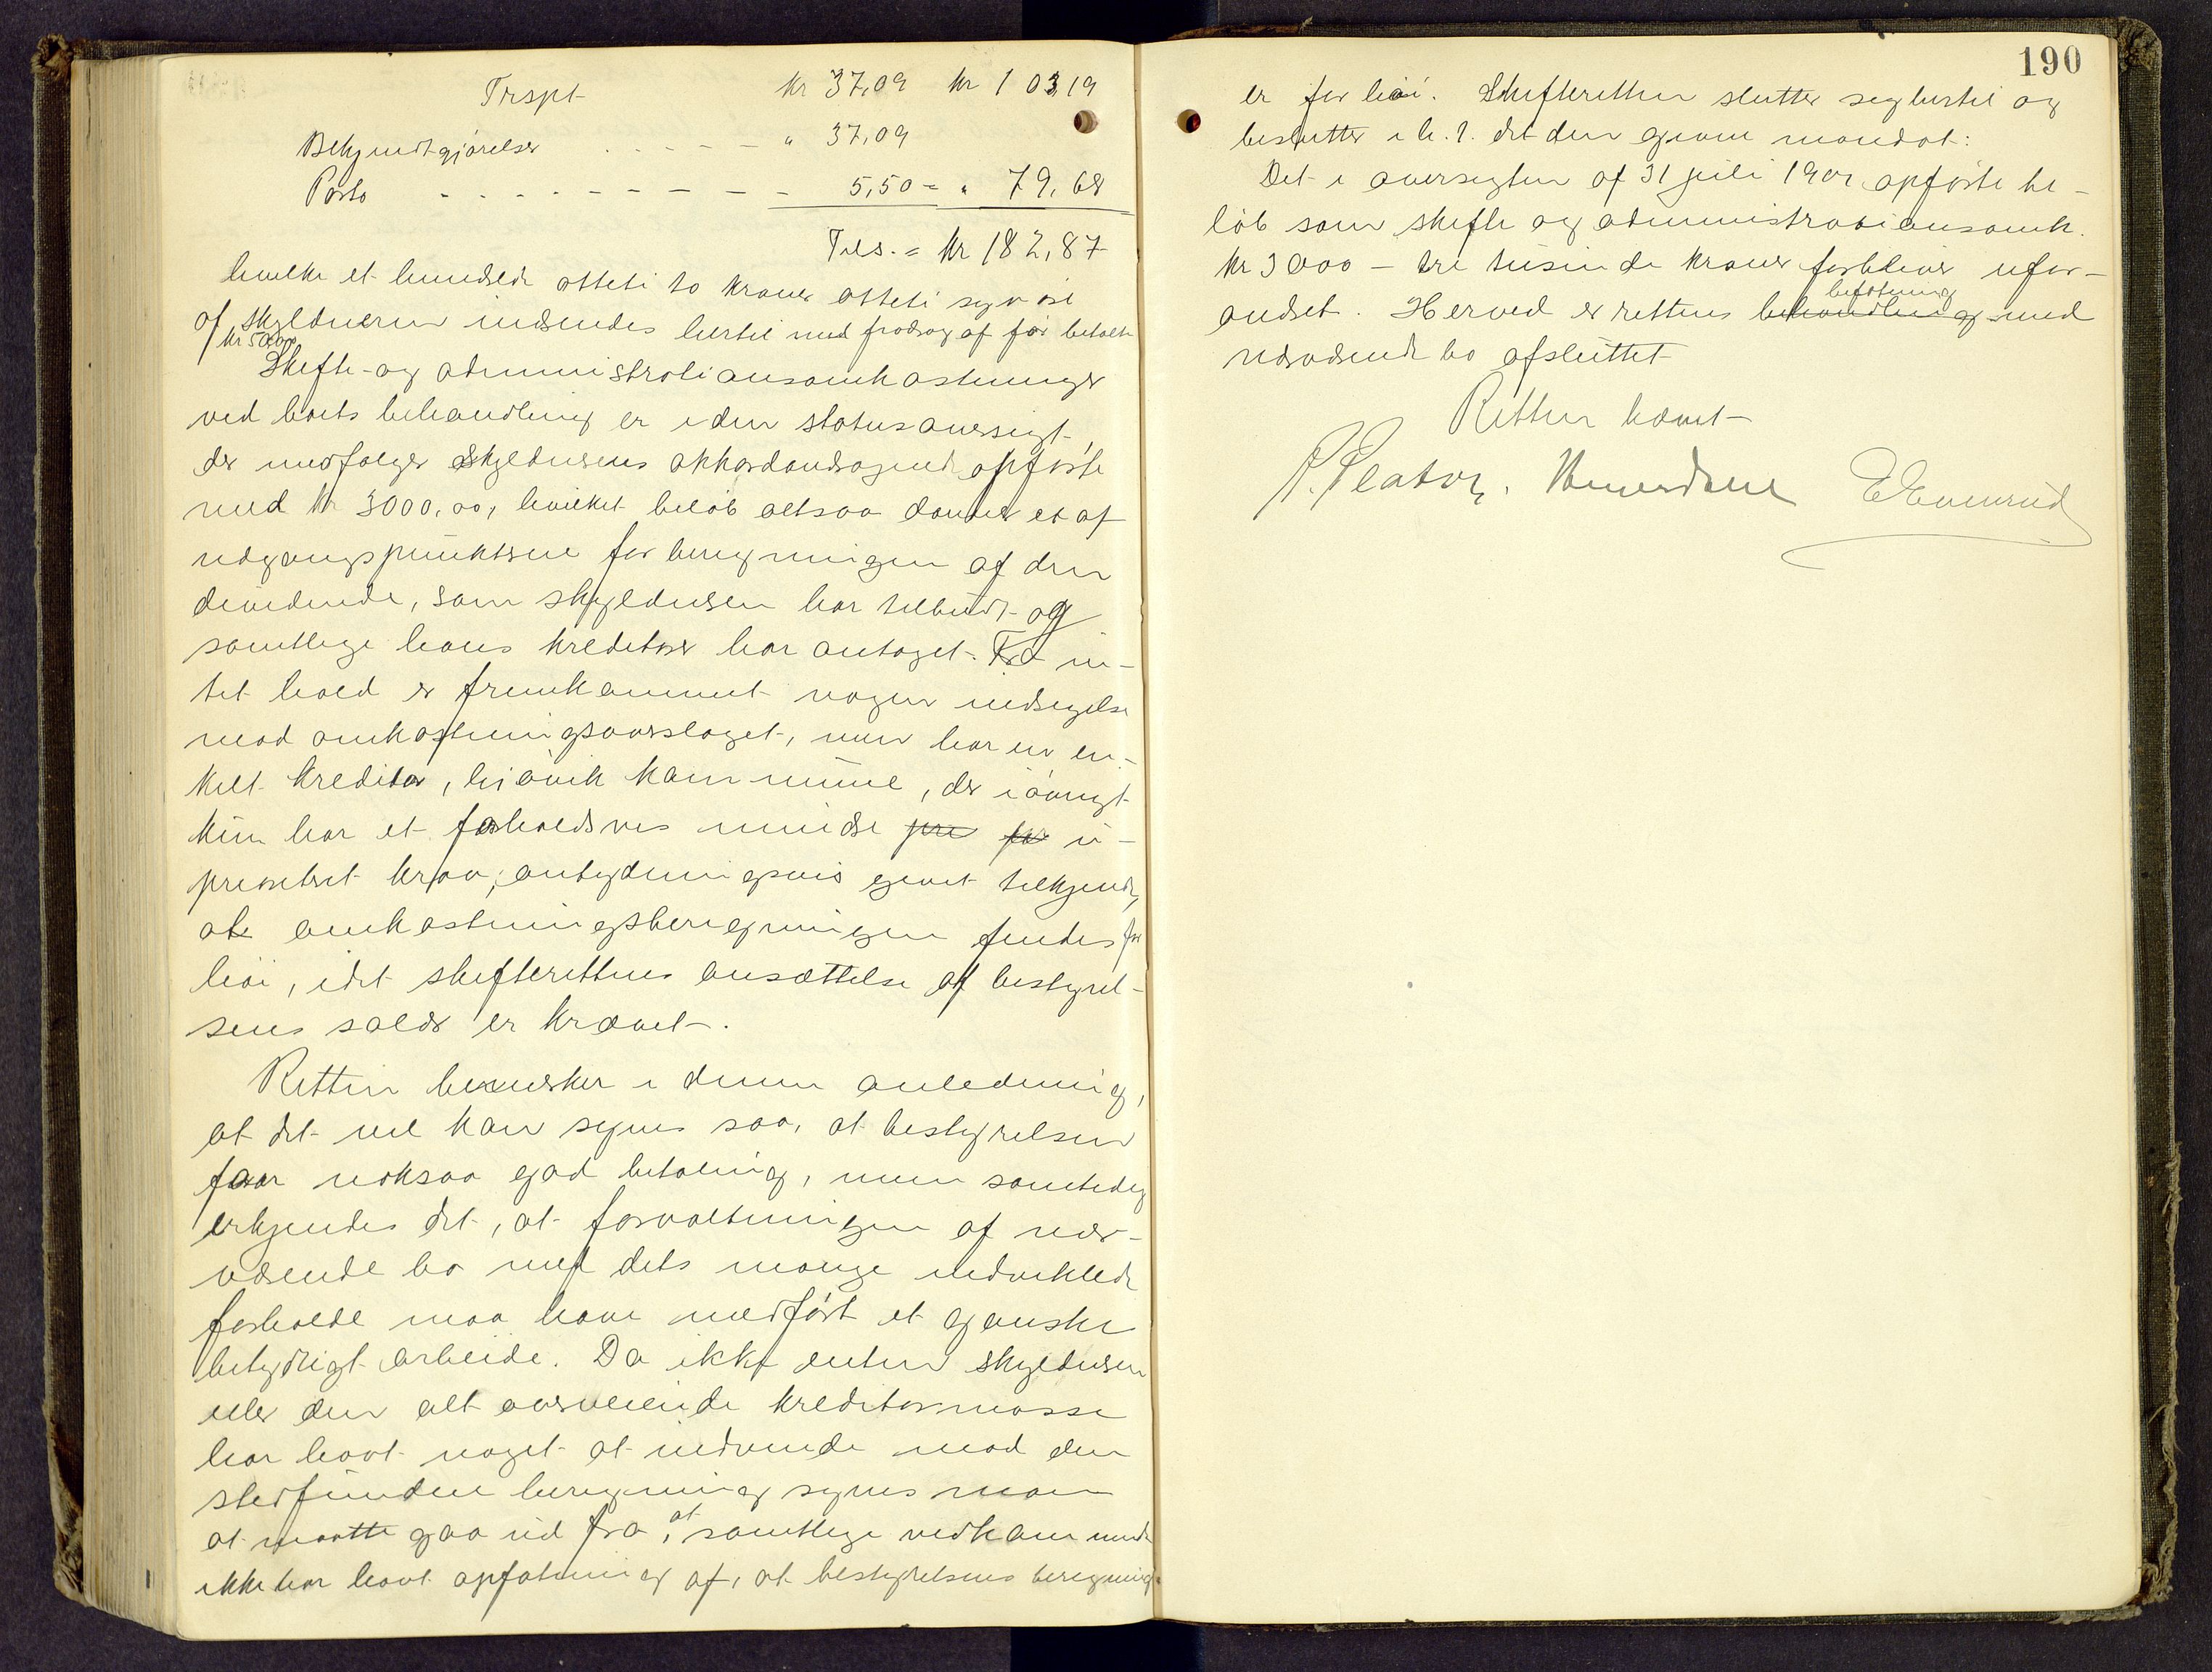 Trspt kr 37,09 kr 103,19
Bekjendtgjørelser - - - - - " 37,09
Porto - - - - - - - - - 5,50 = " 79,68
Tils. = kr 182,87
hvilke et hundrede otteti to kroner otteti syv øre
af skyldneren indsendes hertil med fradrag af før betalt
kr 50,00.
Skifte- og administrationsomkostninger
ved boets behandling er i den statusoversigt,
der medfølger skyldnerens akkordandragende opført
med kr 3000,00, hvilket beløb altsaa danner et af
udgangspunkterne for beregningen af den
dividende, som skyldneren har tilbudt og
samtlige hans kreditorer har antaget. Fra in-
tet hold er fremkommet nogen indsigelse
mod omkostningsoverslaget, men har en en-
kelt kreditor, Gjøvik kommune, der iøvrigt
kun har et forholdsvis mindre pri for u-
prioritert krav, antydningsvis givet tilkjende,
at omkostningsberegningen findes for
høi, idet skifterettens ansættelse af bestyrel-
sens salær er krævet.
Retten bemerker i denne anledning,
at det vel kan synes saa, at bestyrelsen
faar noksaa god betaling, men samtidig
erkjendes det, at forvaltningen af nær-
værende bo med dets mange indviklede
forholde maa have medført et ganske
betydligt arbeide. Da ikke enten skyldneren
eller den alt overveiende kreditormasse
har havt noget at indvende mod den
stedfundne beregning synes man
at maatte gaa ud fra, at samtlige vedkommende
ikke har havt opfatning af, at bestyrelsens beregning
190
er for høi. Skifteretten slutter sig hertil og
beslutter i h. t. det den givne mandat:
Det i oversigten af 31 juli 1901 opførte be-
løb som skifte og administrationsomk.
kr 3000 - tre tusinde kroner forbliver ufor-
andret. Herved er rettens behandling befatning med
nærværende bo afsluttet
Retten hævet